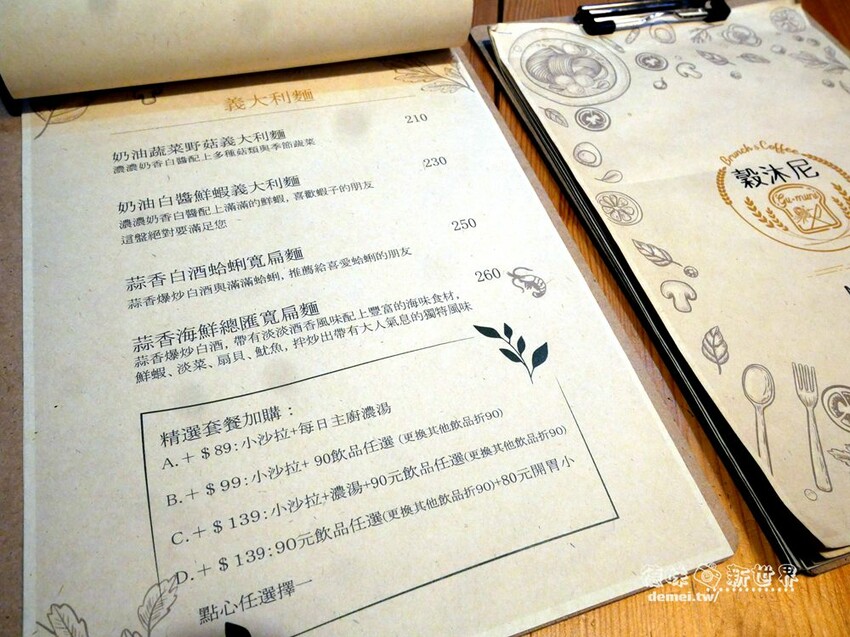 義大利麵
奶油蔬菜野菇義大利麵 210
濃濃奶香白醬配上多種菇類與季節蔬菜
奶油白醬鮮蝦義大利麵 230
濃濃奶香白醬配上滿滿的鮮蝦, 喜歡蝦子的朋友
這盤絕對要滿足您
蒜香白酒蛤蜊寬扁麵 250
蒜香爆炒白酒與滿滿蛤蜊, 推薦給喜愛蛤蜊的朋友
蒜香海鮮總匯寬扁麵 260
蒜香爆炒白酒, 帶有淡淡酒香風味配上豐富的海味食材,
鮮蝦、淡菜、扇貝、魷魚, 拌炒出帶有大人氣息的獨特風味
精選套餐加購：
A.＋＄89：小沙拉+每日主廚濃湯
B.＋＄99：小沙拉+ 90飲品任選 (更換其他飲品折90)
C.＋＄139：小沙拉+濃湯+90元飲品任選(更換其他飲品折90)
D.＋＄139：90元飲品任選(更換其他飲品折90)+80元開胃小
點心任選擇一
Brunch & Coffee
穀沐尼
Gu-muni
新世界
demei.tw/